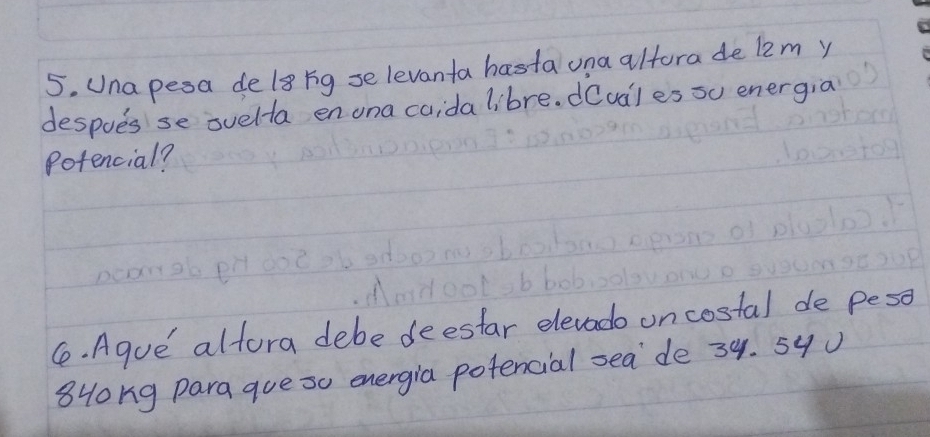 5. Una pesa de 18 kg se levanta hasta una altura de 12m y
después se suelta en una caida libre. ¿Cuál es su energia
Potencial?
6. A qué altura debe de estar elevado un costal de peso
840 kg para que su energia potencial sea de 34.54 J